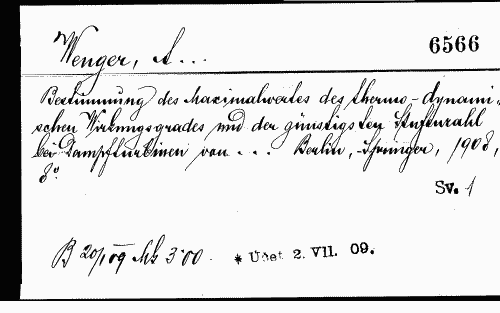 Wenger, A...
6566
Bestimmung des Maximalwertes des thermo-dynami-
schen Wirkungsgrades und der günstigsten Stufenzahl
bei Dampfturbinen von ... Berlin, Springer, 1908,
8°
Sv. 1
B 20/1 09 Mk 3·00. * Uhet 2. VII. 09.